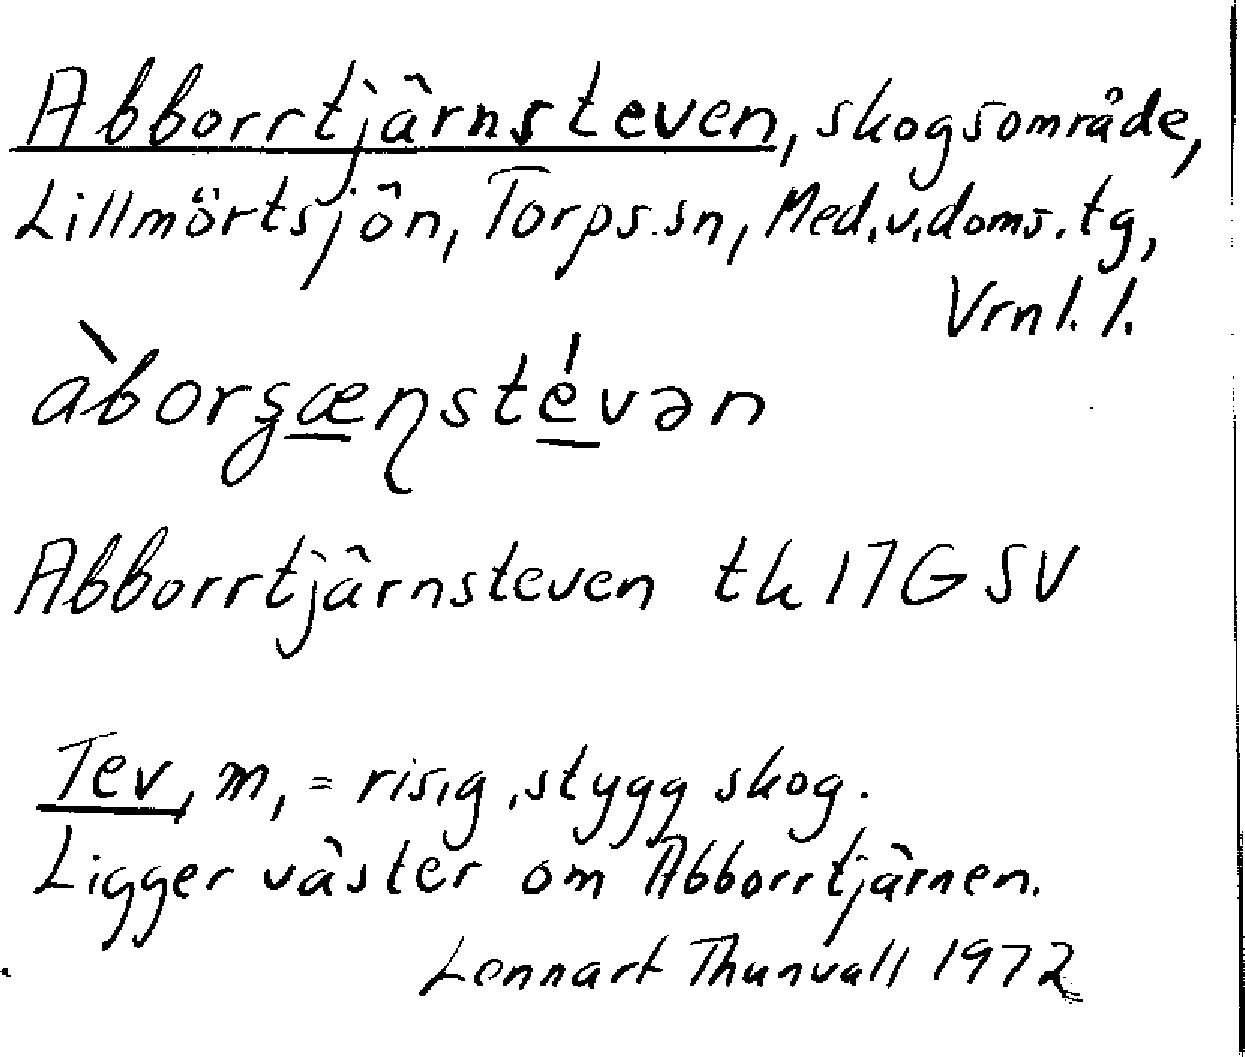 Abborrtjärnsteven, skogsområde,
Lillmörtsjön, Torps.sn, Med.v.doms.tg,
Vrnl.l.
àborʂæɳstévən
Abborrtjärnsteven tk 17G SV
Tev, m, = risig, stygg skog.
Ligger väster om Abborrtjärnen.
Lennart Thunvall 1972